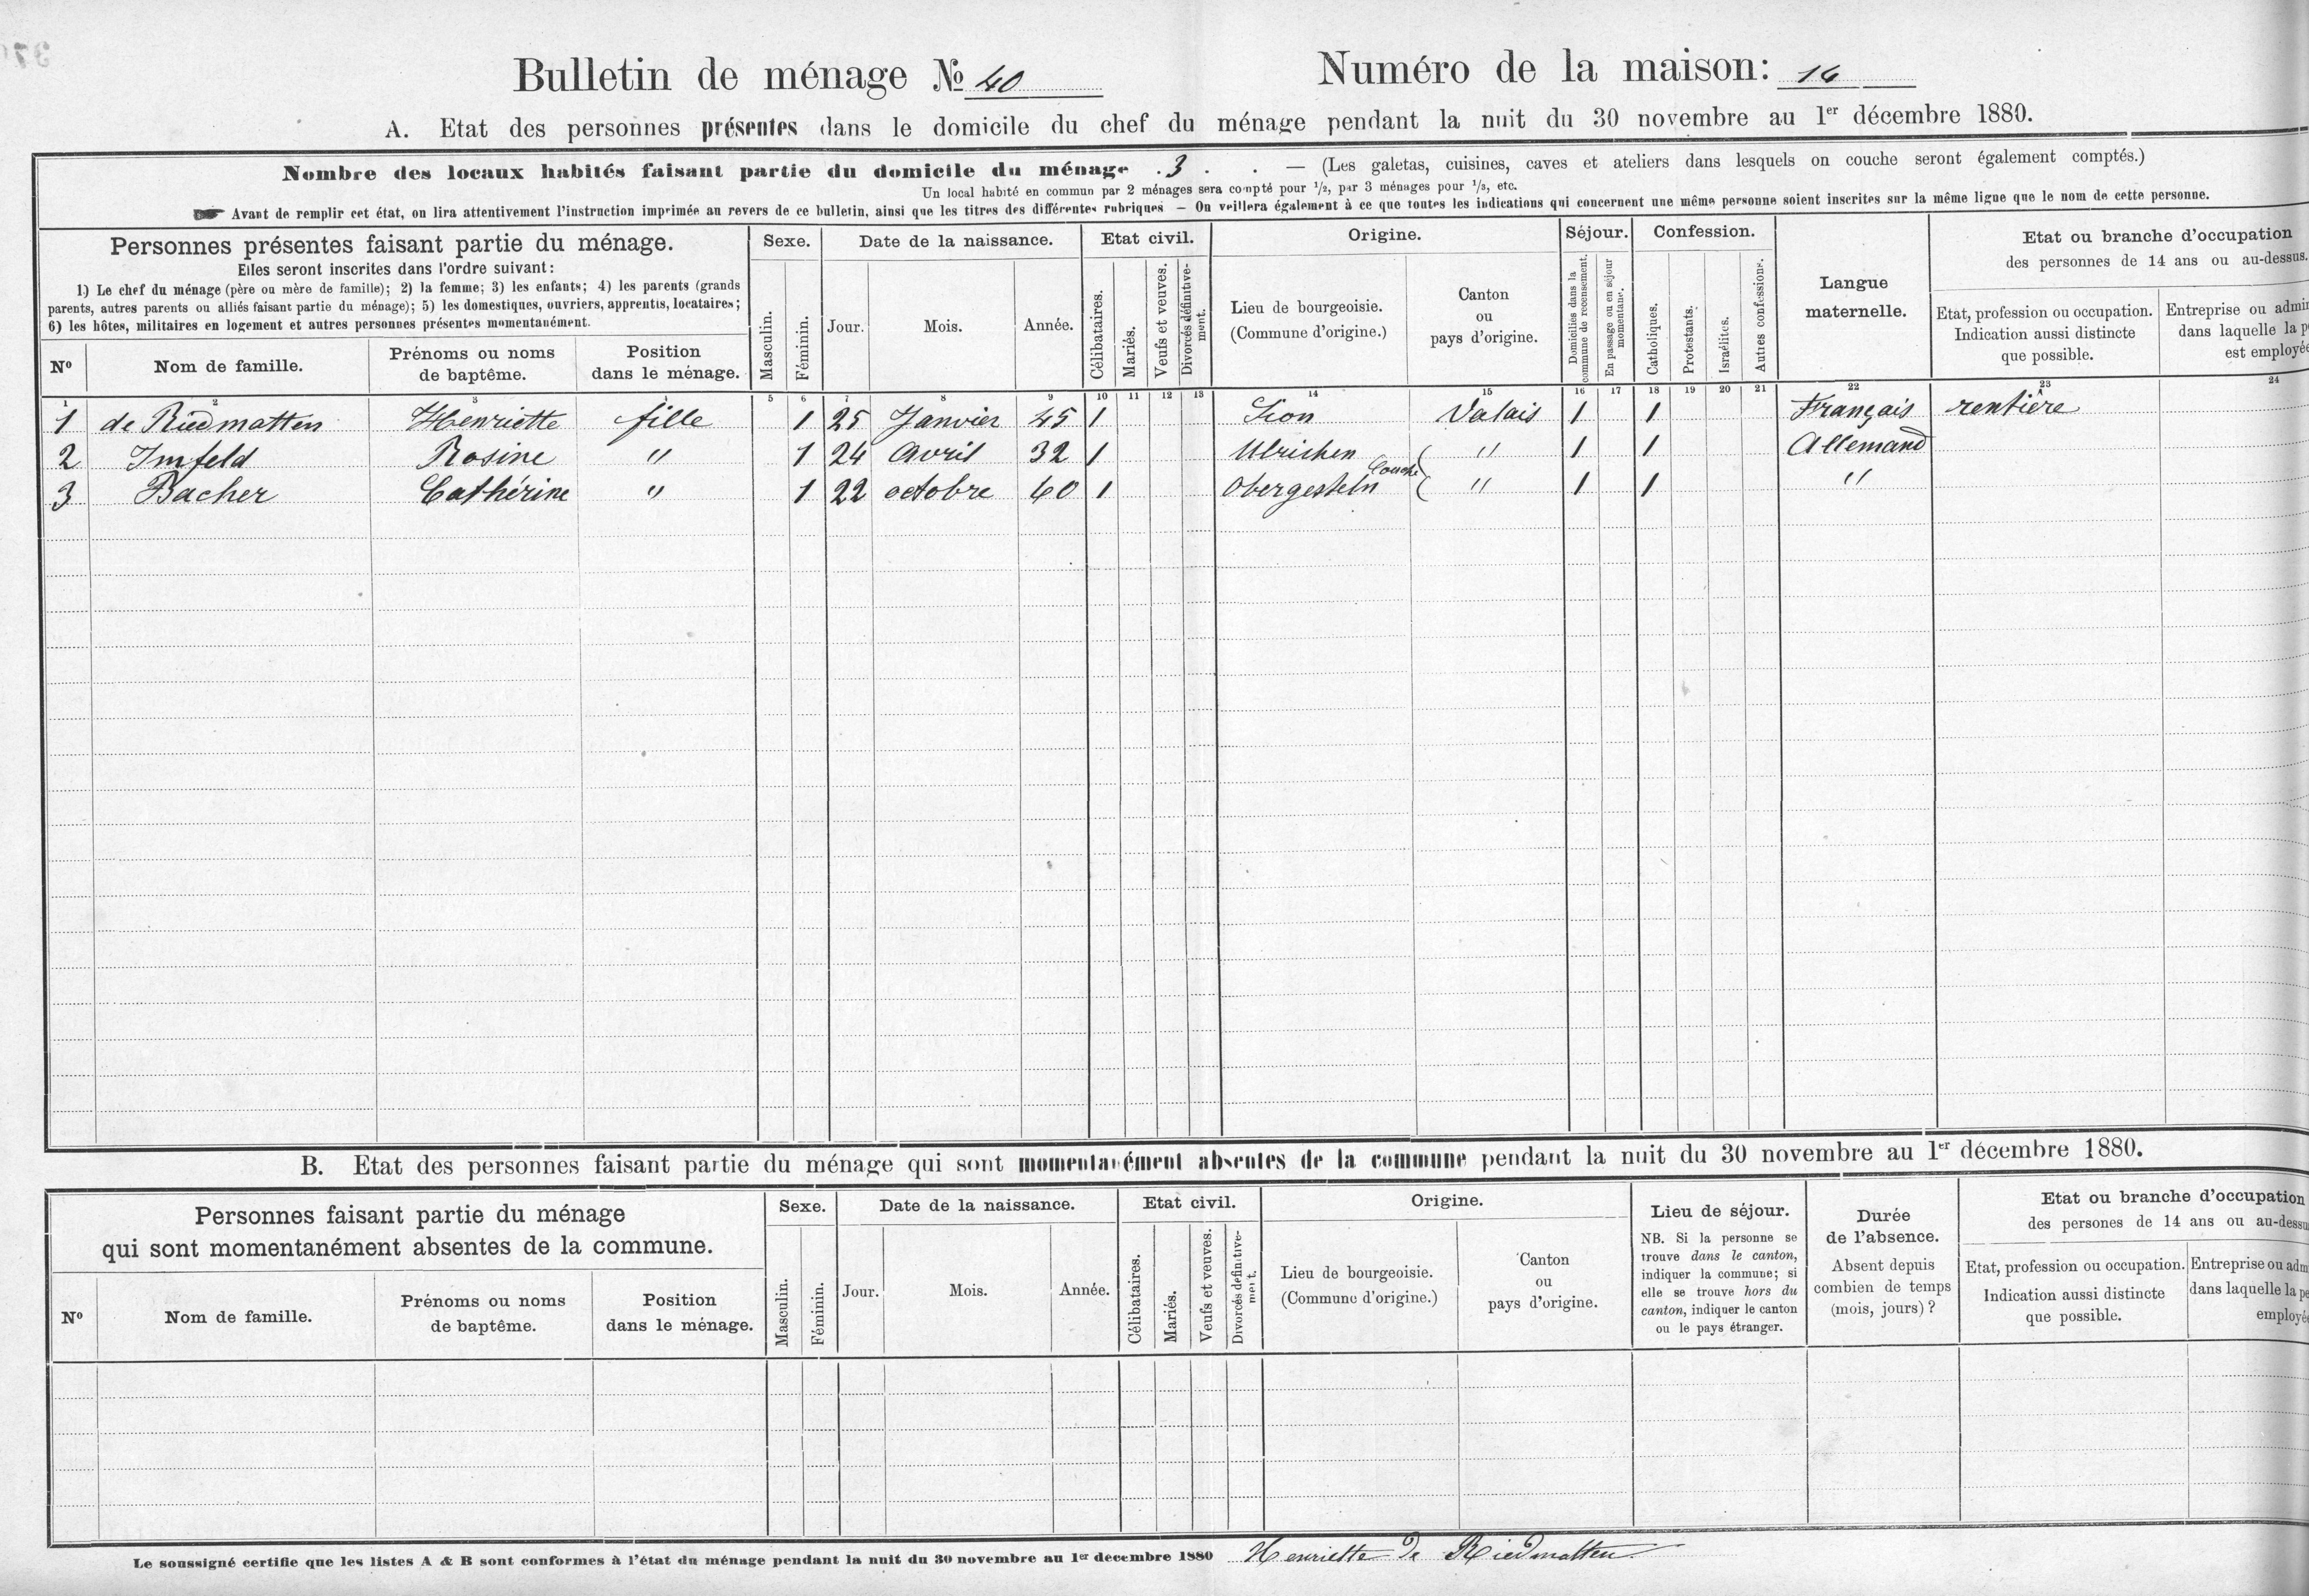 Bulletin de ménage No 40
Numéro de la maison: 14
A. Etat des personnes présentes dans le domicile du chef du ménage pendant la nuit du 30 novembre au 1er décembre 1880.
Nombre des locaux habités faisant partie du domicile du ménage . 3 . . — (Les galetas, cuisines, caves et ateliers dans lesquels on couche seront également comptés.)
Un local habité en commun par 2 ménages sera compté pour 1/2, par 3 ménages pour 1/3, etc.
Avant de remplir cet état, on lira attentivement l'instruction imprimée au revers de ce bulletin, ainsi que les titres des différentes rubriques — On veillera également à ce que toutes les indications qui concernent une même personne soient inscrites sur la même ligne que le nom de cette personne.
Personnes présentes faisant partie du ménage.
Elles seront inscrites dans l'ordre suivant:
1) Le chef du ménage (père ou mère de famille); 2) la femme; 3) les enfants; 4) les parents (grands
parents, autres parents ou alliés faisant partie du ménage); 5) les domestiques, ouvriers, apprentis, locataires;
6) les hôtes, militaires en logement et autres personnes présentes momentanément.
No
Nom de famille.
Prénoms ou noms
de baptême.
Position
dans le ménage.
Sexe.
Masculin.
Féminin.
Date de la naissance.
Jour.
Mois.
Année.
Etat civil.
Célibataires.
Mariés.
Veufs et veuves.
Divorcés définitive-
ment.
Origine.
Lieu de bourgeoisie.
(Commune d'origine.)
Canton
ou
pays d'origine.
Séjour.
Domiciliés dans la
commune de recensement.
En passage ou en séjour
momentané.
Confession.
Catholiques.
Protestants.
Israélites.
Autres confessions.
Langue
maternelle.
Etat ou branche d'occupation
des personnes de 14 ans ou au-dessus.
Etat, profession ou occupation.
Indication aussi distincte
que possible.
Entreprise ou admin
dans laquelle la p
est employée
1 2 3 4 5 6 7 8 9 10 11 12 13 14 15 16 17 18 19 20 21 22 23 24
1 de Riedmatten Henriette fille 1 25 Janvier 45 1 Sion Valais 1 1 Français rentière
2 Imfeld Rosine " 1 24 Avril 32 1 Ulrichen " 1 1 Allemand
Conche
3 Bacher Cathérine " 1 22 octobre 40 1 Obergesteln " 1 1 "
B. Etat des personnes faisant partie du ménage qui sont momentanément absentes de la commune pendant la nuit du 30 novembre au 1er décembre 1880.
Personnes faisant partie du ménage
qui sont momentanément absentes de la commune.
No
Nom de famille.
Prénoms ou noms
de baptême.
Position
dans le ménage.
Sexe.
Masculin.
Féminin.
Date de la naissance.
Jour.
Mois.
Année.
Etat civil.
Célibataires.
Mariés.
Veufs et veuves.
Divorcés définitive-
ment.
Origine.
Lieu de bourgeoisie.
(Commune d'origine.)
Canton
ou
pays d'origine.
Lieu de séjour.
NB. Si la personne se
trouve dans le canton,
indiquer la commune; si
elle se trouve hors du
canton, indiquer le canton
ou le pays étranger.
Durée
de l'absence.
Absent depuis
combien de temps
(mois, jours)?
Etat ou branche d'occupation
des persones de 14 ans ou au-dessu
Etat, profession ou occupation.
Indication aussi distincte
que possible.
Entreprise ou adm
dans laquelle la pe
employée
Le soussigné certifie que les listes A & B sont conformes à l'état du ménage pendant la nuit du 30 novembre au 1er decembre 1880 Henriette de Riedmatten